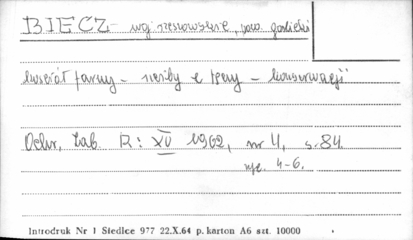 BIECZ - woj. rzeszowskie, pow. gorlicki
kościół farny - rzeźby z tęczy - konserwacji
Ochr. Zab. R: XV 1962, nr 4, s. 84.
ryc. 4-6.
Introdruk Nr 1 Siedlce 977 22.X.64 p. karton A6 szt. 10000